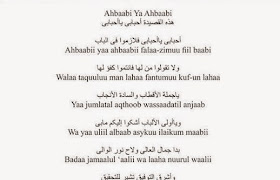 Ahbaabi Ya Ahbaabi
هذه القصيدة أحبابي ياأحبابي
أحبابي ياأحبابي فلازموا في الباب
Ahbaabii yaa ahbaabii falaa-zimuu fiil baabi
ولا تقولوا من لها فانتموا كفو لها
Walaa taquuluu man lahaa fantumuu kuf-un lahaa
ياجملة الأقطاب والسادة الأنجاب
Yaa jumlatal aqthoob wassaadatil anjaab
وياأولي الألباب أشكوا إليكم مابي
Wa yaa uliil albaab asykuu ilaikum maabii
بدا جمال العالي ولاح نور الوالي
Badaa jamaalul ‘aalii wa laaha nuurul waalii
وأشرق التوفيق تشير للتحقيق